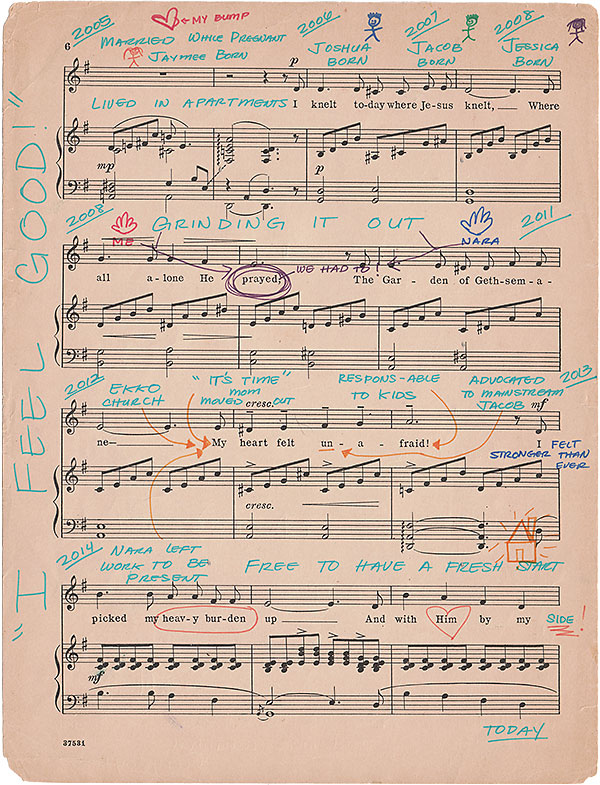 2005
MY BUMP
2006
2007
2008
6
MARRIED WHILE PREGNANT
JAYMEE BORN
JOSHUA
BORN
JACOB
BORN
JESSICA
BORN
p
LIVED IN APARTMENTS I knelt to-day where Je-sus knelt, Where
mp
p
"I FEEL GOOD!"
2008
GRINDING IT OUT
2011
ME
NARA
WE HAD TO!
all a-lone He prayed; The Gar-den of Geth-sem-a-
2012
EKKO
CHURCH
"IT'S TIME"
MOM
MOVED OUT
RESPONS-ABLE
TO KIDS
ADVOCATED
TO MAINSTREAM
JACOB
2013
cresc.
mf
ne— My heart felt un-a-fraid! I FELT
STRONGER THAN
EVER
cresc.
2014
NARA LEFT
WORK TO BE
PRESENT
FREE TO HAVE A FRESH START
picked my heav-y bur-den up And with Him by my SIDE!
mf
TODAY
37531